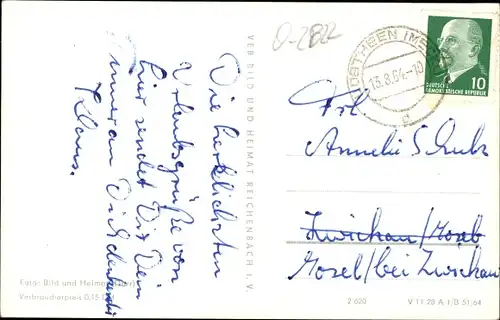 0-2822
Die herzlichsten
Urlaubsgrüße von
hier sendet Dir Dein
immer an Dich denkender
Klaus.
VEB BILD UND HEIMAT REICHENBACH I. V.
Foto: Bild und Heimat
Verbraucherpreis 0,15
13.8.64-10
10
DEUTSCHE
DEMOKRATISCHE REPUBLIK
Frl.
Annelie Schulz
Zwickau/Mosel
Mosel/bei Zwickau
2 620
V 11 28 A 1/B 51/64